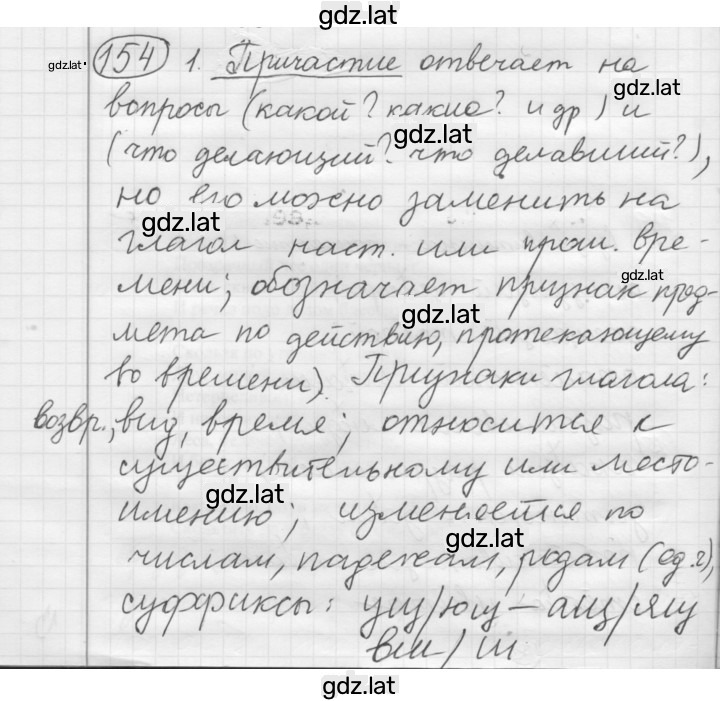 gdz.lat
154 1. Причастие отвечает на
gdz.lat
вопросы (какой? какие? и др) и
gdz.lat
(что делающий? что делавший?),
gdz.lat
но его можно заменить на
gdz.lat
глагол наст. или прош. вре-
мени; обозначает признак пред-
gdz.lat
мета по действию, протекающему
во времени). Признаки глагола:
возвр., вид, время; относится к
существительному или место-
gdz.lat
имению; изменяется по
gdz.lat
числам, падежам, родам (ед.ч),
суффиксы: ущ/ющ – ащ/ящ
вш / ш
gdz.lat